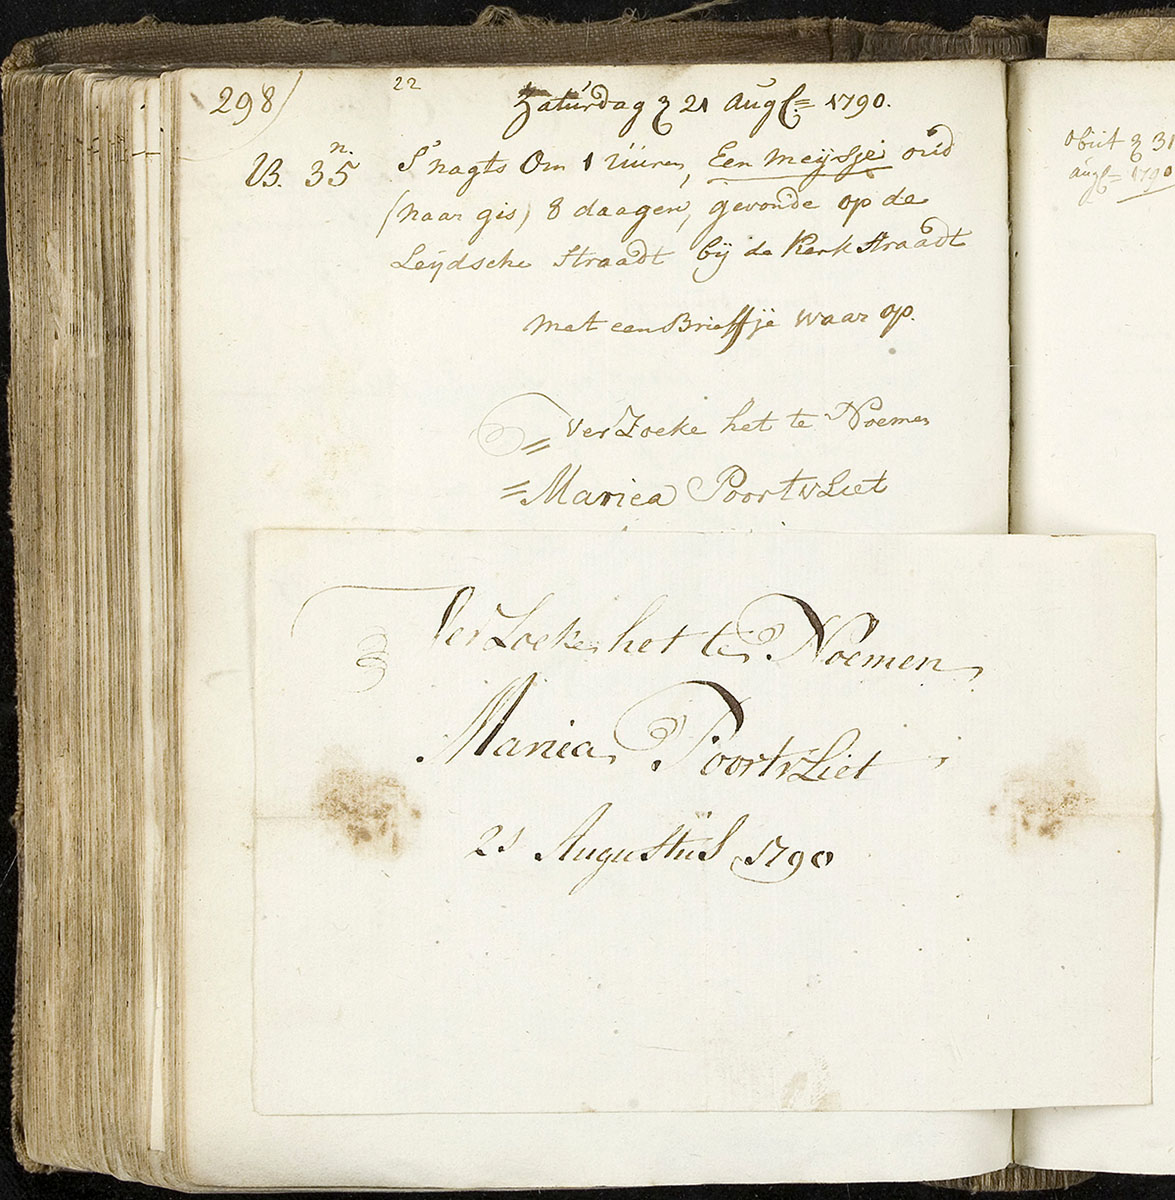 298)
22
Zaturdag 21 Augs. 1790.
VB. n. 35
S'nagts Om 1 Uüren, Een Meijsje oud
(naar gis) 8 daagen, gevonde op de
Leijdsche Straadt bij de Kerk Straadt
met een Brieffje waar op.
Ver Zoeke het te Noemen
= Mariea Poortvliet
Ver Zoeke het te Noemen
Mariea Poortvliet
21 Augustus 1790
obiit 31
augs. 1790